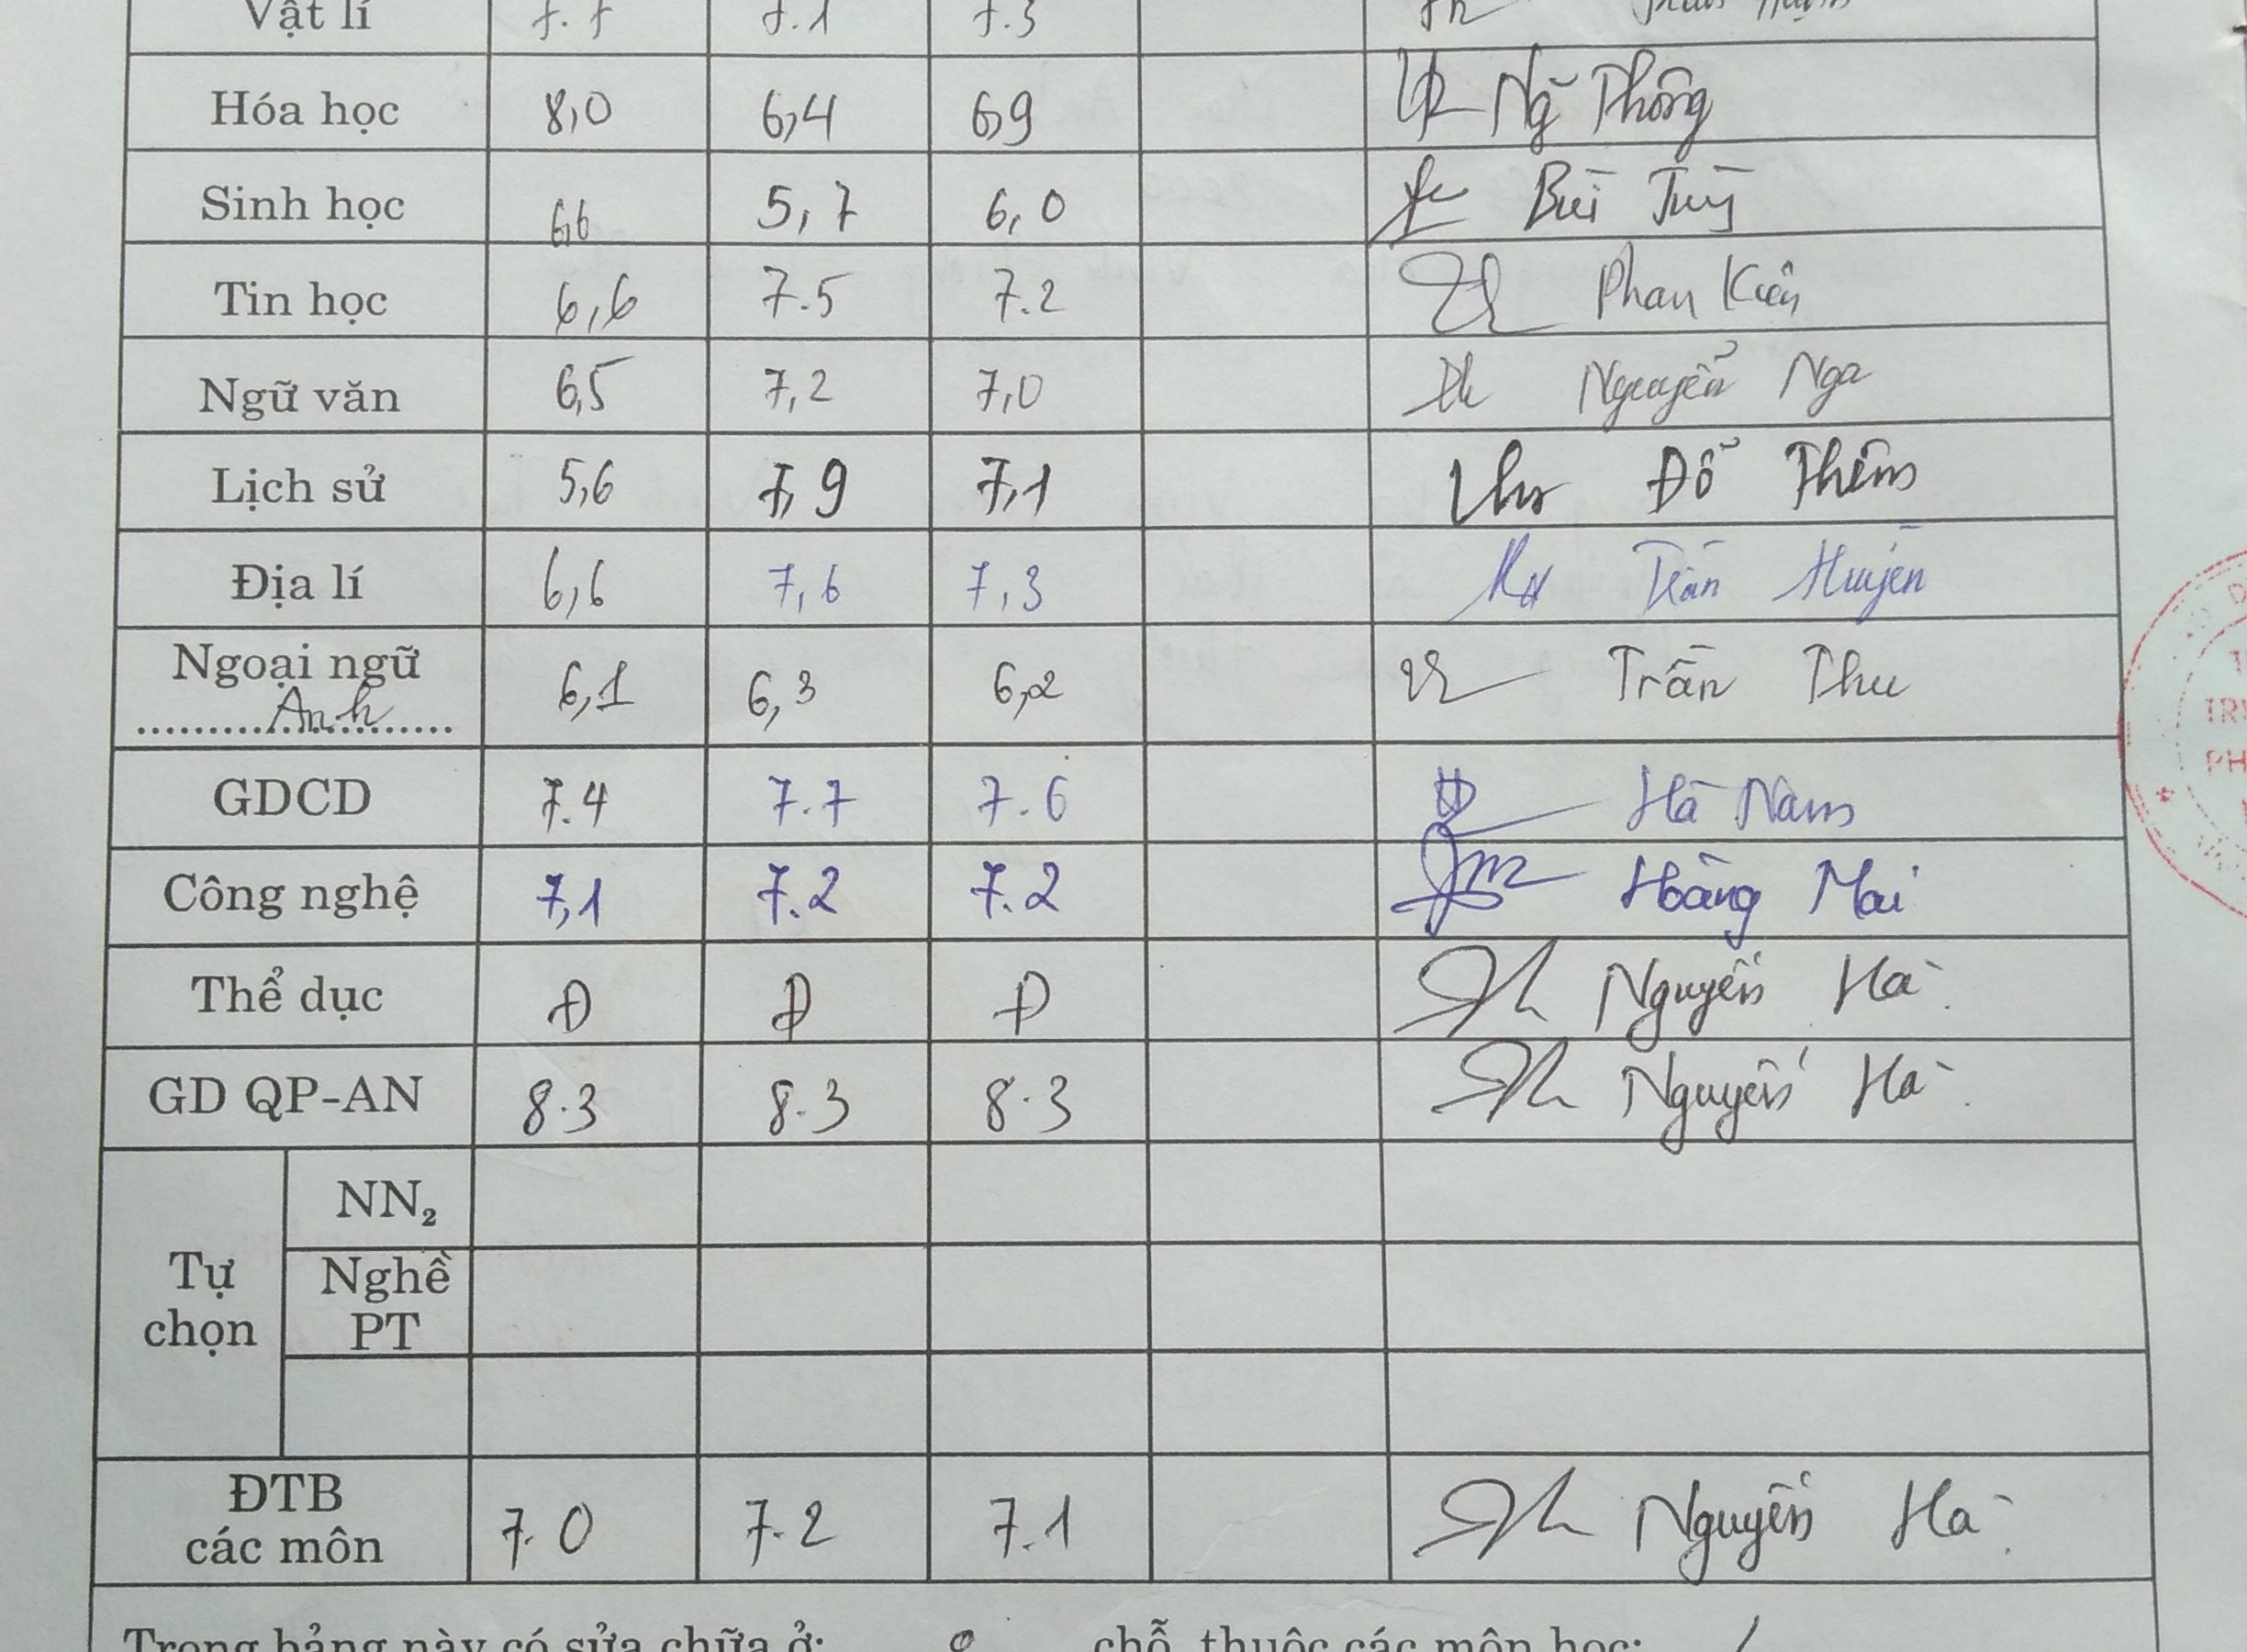 Vật lí 7.7 7.1 7.3
Hóa học 8,0 6,4 6,9 Ng Thông
Sinh học 6,6 5,7 6,0 Bùi
Tin học 6,6 7.5 7.2 Phan Kiên
Ngữ văn 6,5 7,2 7,0 Nguyễn Nga
Lịch sử 5,6 7,9 7,1 Đỗ Thêm
Địa lí 6,6 7,6 7,3 Trần Huyền
Ngoại ngữ
Anh 6,1 6,3 6,2 Trần Thu
GDCD 7.4 7.7 7.6 Hà Nam
Công nghệ 7,1 7.2 7.2 Hoàng Mai
Thể dục Đ Đ Đ Nguyễn Hà
GD QP-AN 8.3 8.3 8.3 Nguyễn Hà
Tự chọn
NN₂
Nghề
PT
ĐTB
các môn 7.0 7.2 7.1 Nguyễn Hà
Trong bảng này có sửa chữa ở: chỗ, thuộc các môn học: /